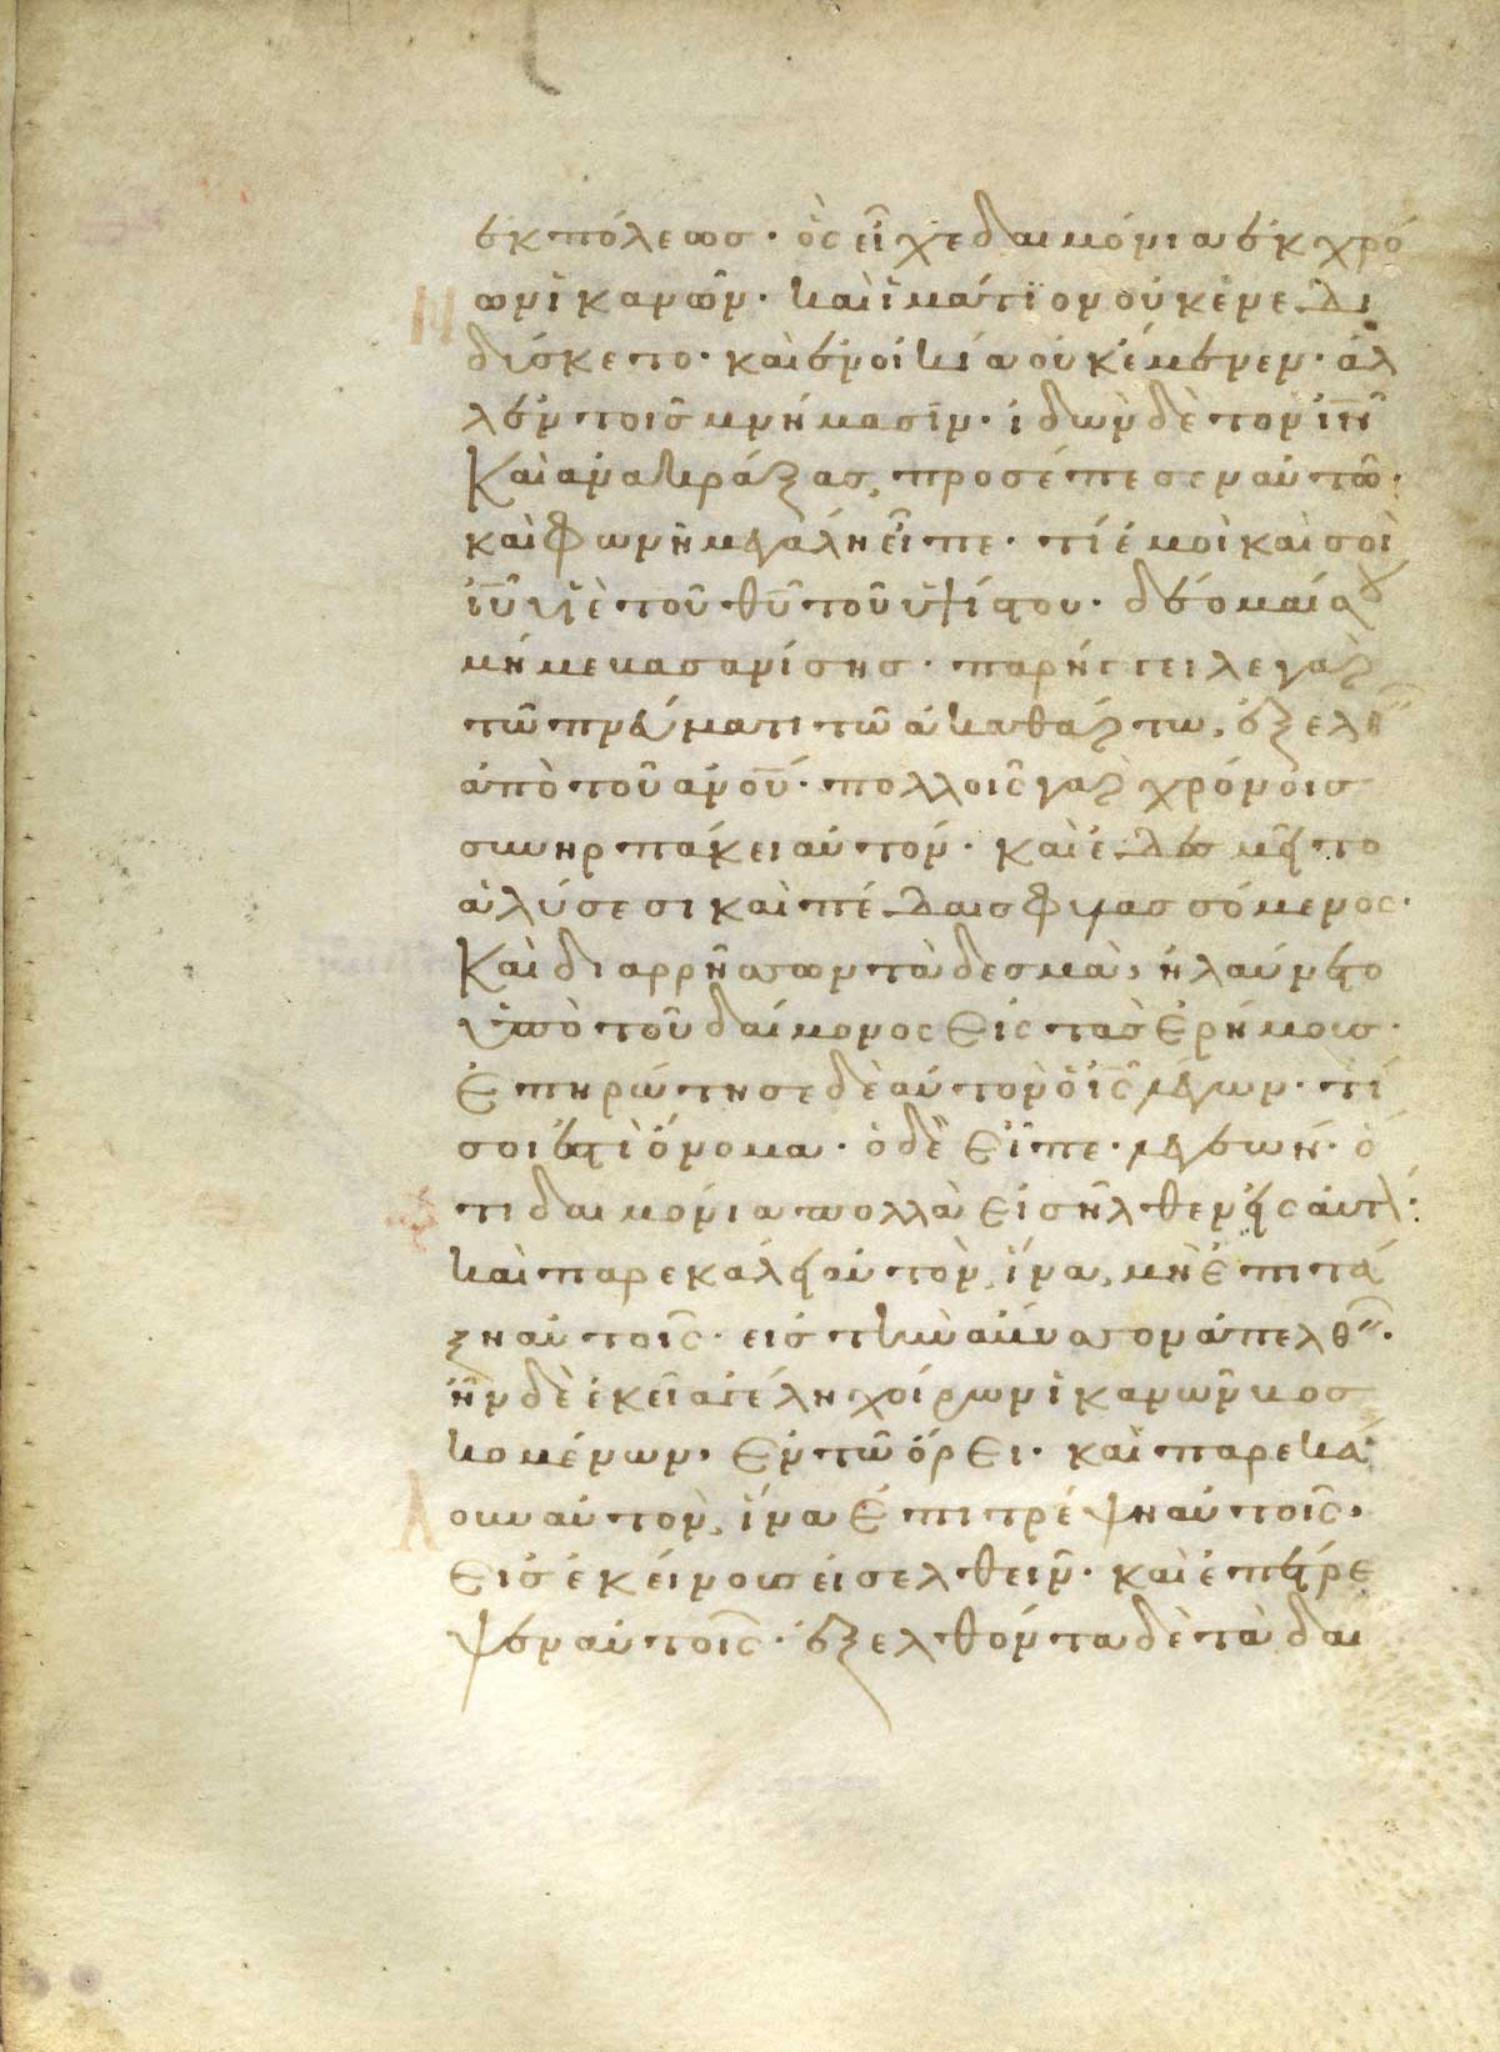 ἐκ πόλεως· ὃς εἶχε δαιμόνια ἐκ χρό
ων ἱκανῶν· καὶ ἱμάτιον οὐκ ἐνεδι
διδύσκετο· καὶ ἐν οἰκία οὐκ ἔμενεν· ἀλ
λ' ἐν τοῖς μνήμασιν· ἰδὼν δὲ τὸν ἰν
καὶ ἀνακράξας, προσέπεσεν αὐτῶ·
καὶ φωνῆ μεγάλη εἶπε· τί ἐμοὶ καὶ σοὶ
ἰυ υἱὲ τοῦ θυ τοῦ ὑψίστου· δέομαί σου
μή με βασανίσης· παρήγγειλε γὰρ
τῶ πνεύματι τῶ ἀκαθάρτω, ἐξελθεῖν
ἀπὸ τοῦ ανου· πολλοῖς γὰρ χρόνοις
συνηρπάκει αὐτόν· καὶ ἐδεσμεῖτο
ἁλύσεσι καὶ πέδαις φυλασσόμενος·
καὶ διαρρήσσων τὰ δεσμὰ, ἠλαύνετο
ὑπὸ τοῦ δαίμονος εἰς τὰς ἐρήμους·
ἐπηρώτησε δὲ αὐτὸν ὁ ις λέγων· τί
σοι ἐστὶ ὄνομα· ὁ δὲ εἶπε· λεγεών· ὅ
τι δαιμόνια πολλὰ εἰσῆλθεν εἰς αὐτὸν·
καὶ παρεκάλει αὐτὸν, ἵνα μὴ ἐπιτά
ξη αὐτοῖς· εἰς τὴν ἄβυσσον ἀπελθεῖν·
ἦν δὲ ἐκεῖ ἀγέλη χοίρων ἱκανῶν βοσ
κομένων· ἐν τῶ ὄρει· καὶ παρεκά
λουν αὐτὸν, ἵνα ἐπιτρέψη αὐτοῖς,
εἰς ἐκείνους εἰσελθεῖν· καὶ ἐπέτρε
ψεν αὐτοῖς· ἐξελθόντα δὲ τὰ δαι